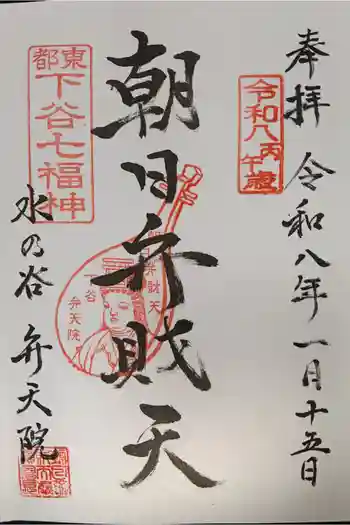 奉拝
令和八年一月十五日
令和八丙午歳
朝日弁財天
東都
下谷七福神
朝日弁財天
下谷
弁天院
水の谷
弁天院